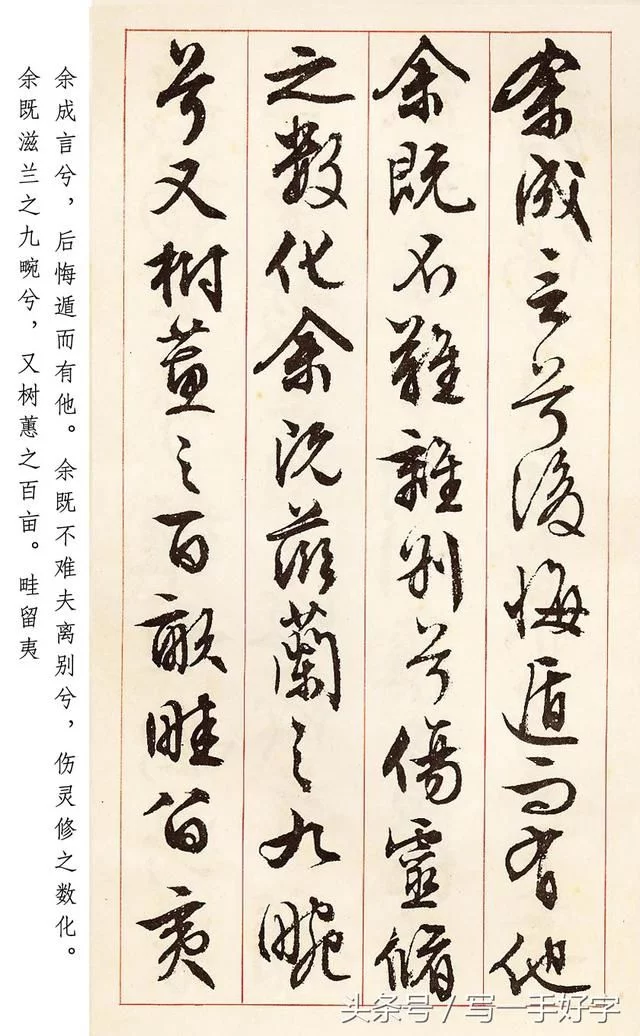 余成言兮後悔遁而有他
余既不難離別兮傷靈脩
之數化余既滋蘭之九畹
兮又樹蕙之百畝畦留夷
余成言兮，后悔遁而有他。余既不难夫离别兮，伤灵修之数化。
余既滋兰之九畹兮，又树蕙之百亩。畦留夷
头条号 / 写一手好字